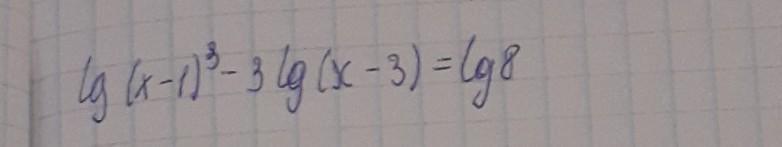 lg (x-1)³ - 3 lg (x - 3) = lg 8